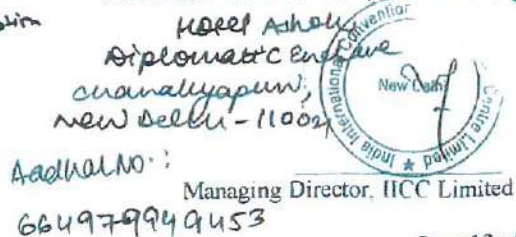 Hotel Ashok,
Diplomatic Enclave
chanakyapuri,
New Delhi - 110021
India International Convention Centre Limited
New Delhi
Aadhar No. :
Managing Director, IICC Limited
664979949453